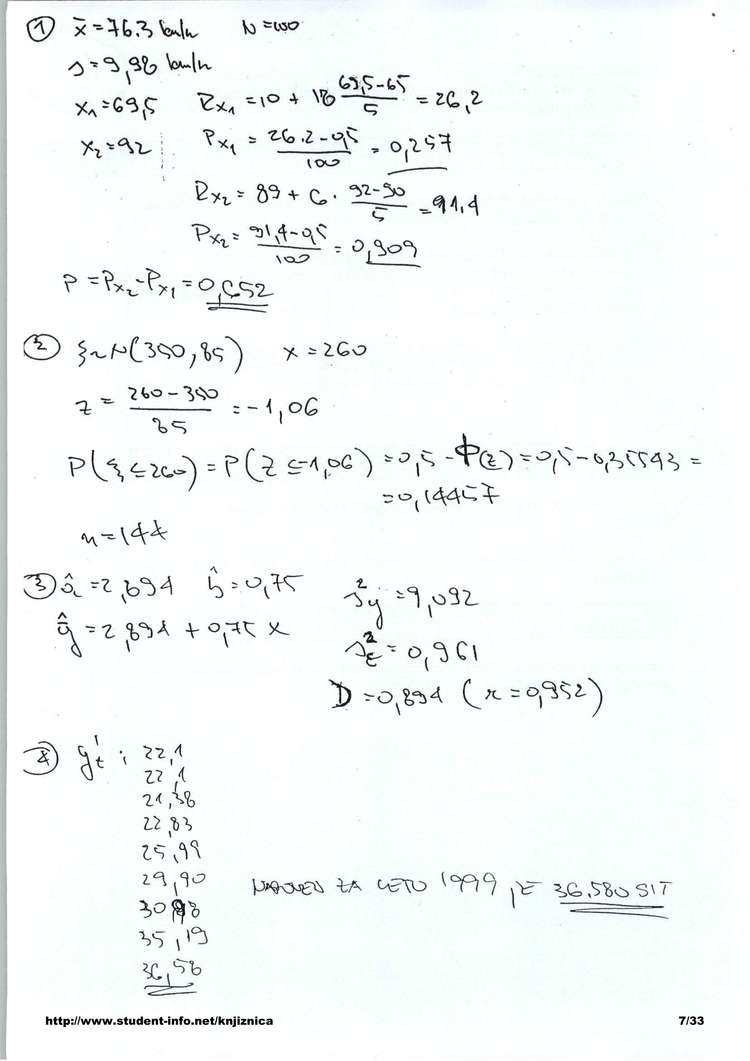 ① x̄ = 76.3 km/h N = 100
s = 9,98 km/h
x₁ = 69,5 R_x₁ = 10 + 18 (69,5-65)/5 = 26,2
x₂ = 92 P_x₁ = (26.2 - 0,5)/100 = 0,257
R_x₂ = 89 + 6 · (92-90)/5 = 91.4
P_x₂ = (91,4 - 0,5)/100 = 0,909
P = P_x₂ - P_x₁ = 0,652
② ξ ~ N(350, 85) x = 260
z = (260 - 350)/85 = -1,06
P(ξ ≤ 260) = P(Z ≤ -1,06) = 0,5 - Φ(z) = 0,5 - 0,35543 =
= 0,14457
n = 144
③ â = 2,894 b̂ = 0,75 s²y = 9,092
ŷ = 2,894 + 0,75 x s²ε = 0,961
D = 0,894 (r = 0,952)
④ y't : 22,1
22,1
21,38
22,83
25,99
29,90 NAPOVED ZA LETO 1999 JE 36.580 SIT
30,98
35,19
36,58
http://www.student-info.net/knjiznica 7/33